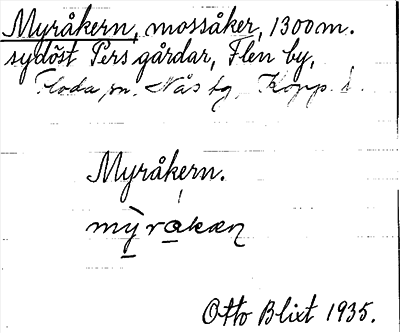 Myråkern, mossåker, 1300 m.
sydöst Pers gårdar, Flen by,
Floda sn. Nås tg, Kopp. l.
Myråkern.
mỳrakæn
Otto Blixt 1935.